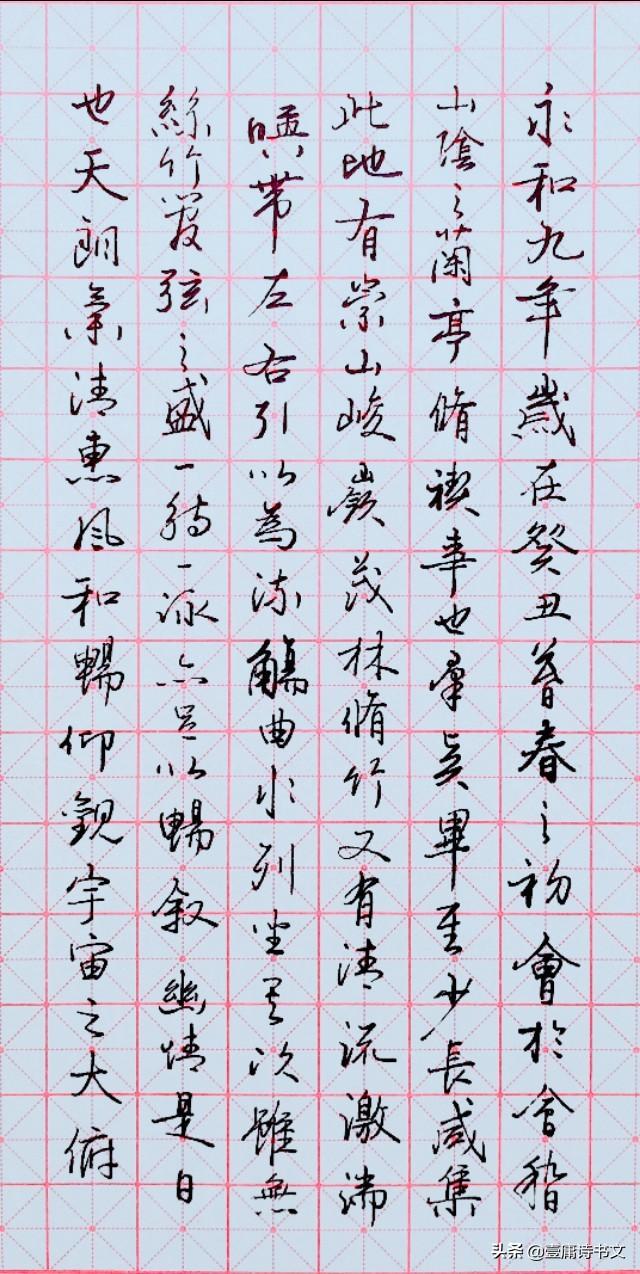 永和九年歲在癸丑暮春之初會於會稽
山陰之蘭亭脩禊事也羣賢畢至少長咸集
此地有崇山峻嶺茂林脩竹又有清流激湍
暎帶左右引以為流觴曲水列坐其次雖無
絲竹管弦之盛一觴一詠亦足以暢敘幽情是日
也天朗氣清惠風和暢仰觀宇宙之大俯
头条 @壹庸诗书文